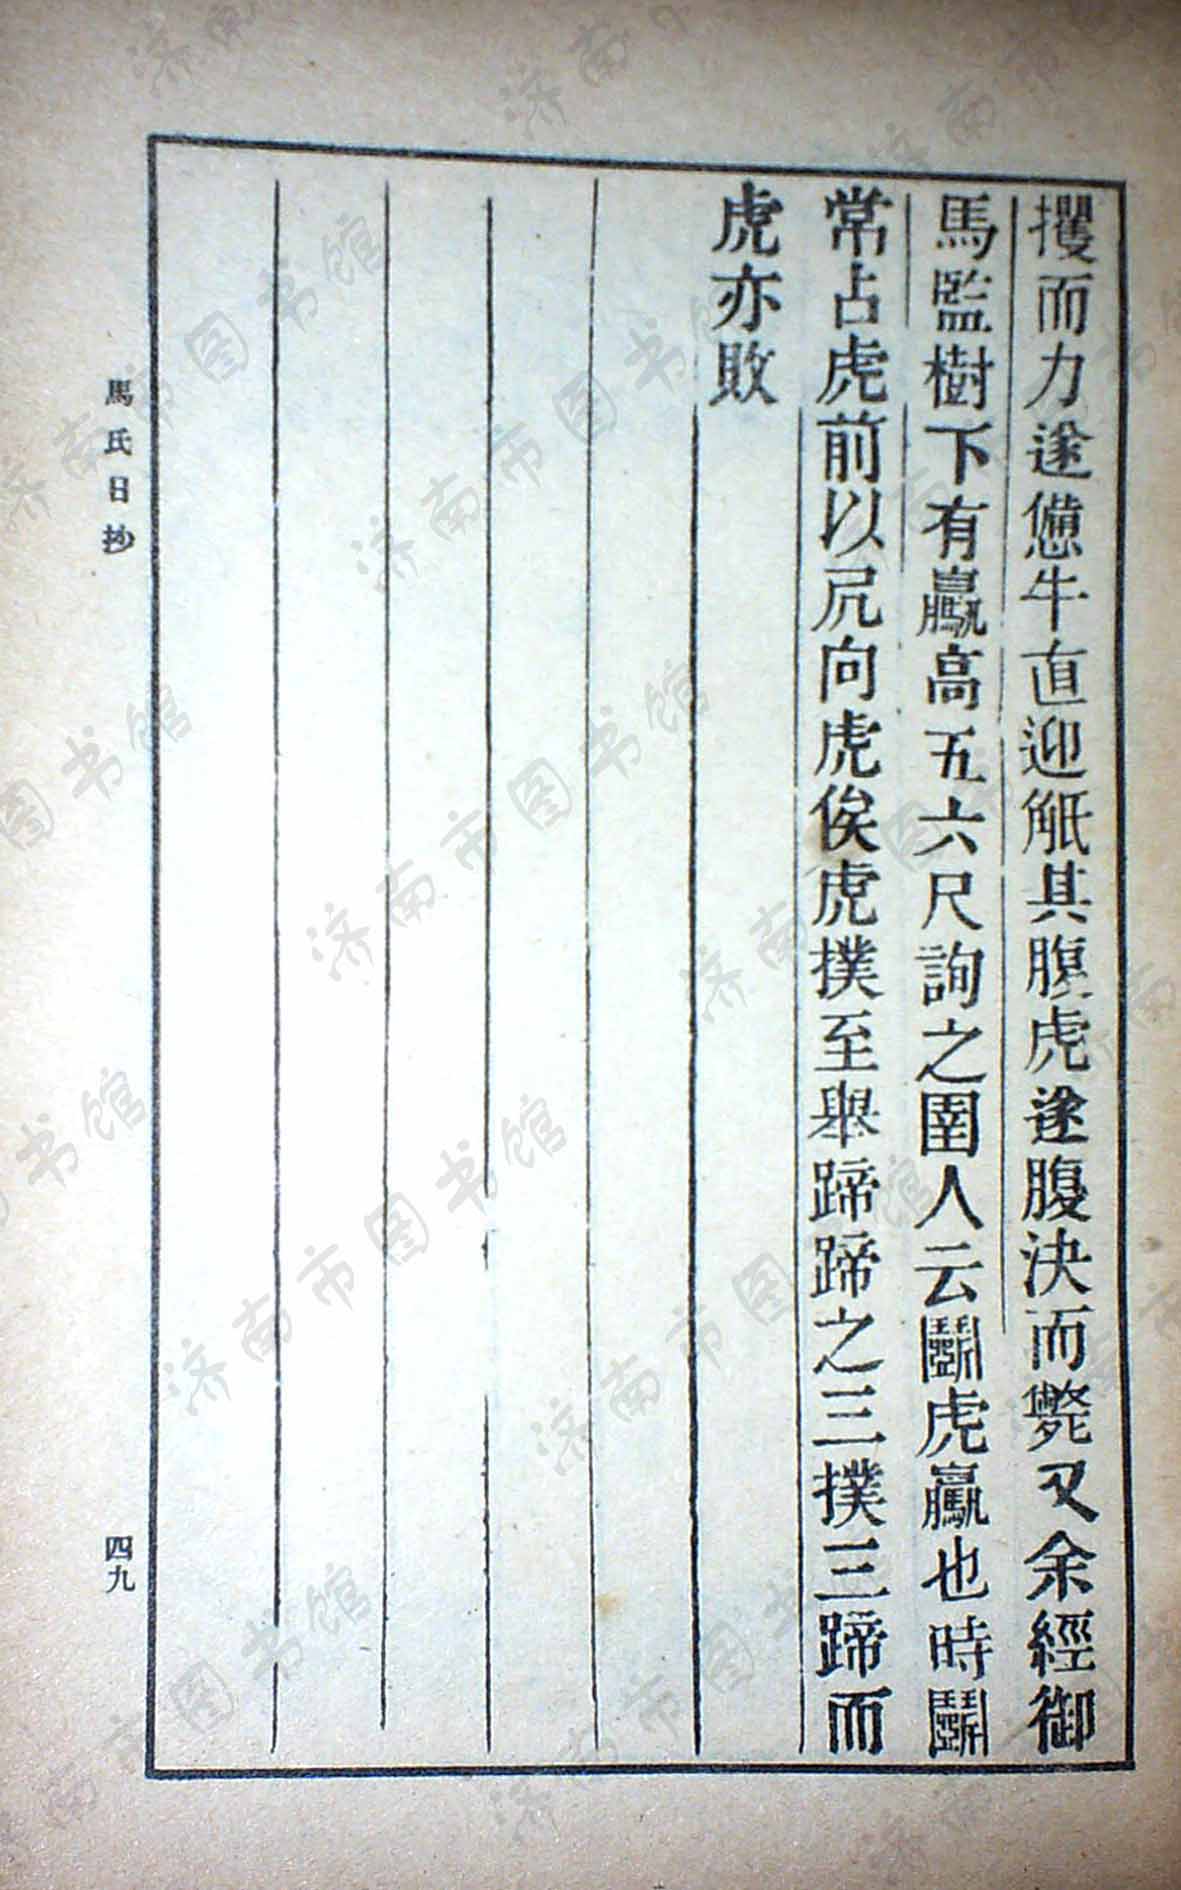 攫而力遂憊牛直迎觝其腹虎遂腹決而斃又余經御
馬監樹下有驘高五六尺詢之圉人云鬭虎驘也時鬭
常占虎前以尻向虎俟虎撲至舉蹄蹄之三撲三蹄而
虎亦敗
馬氏日抄
四九
济南市图书馆